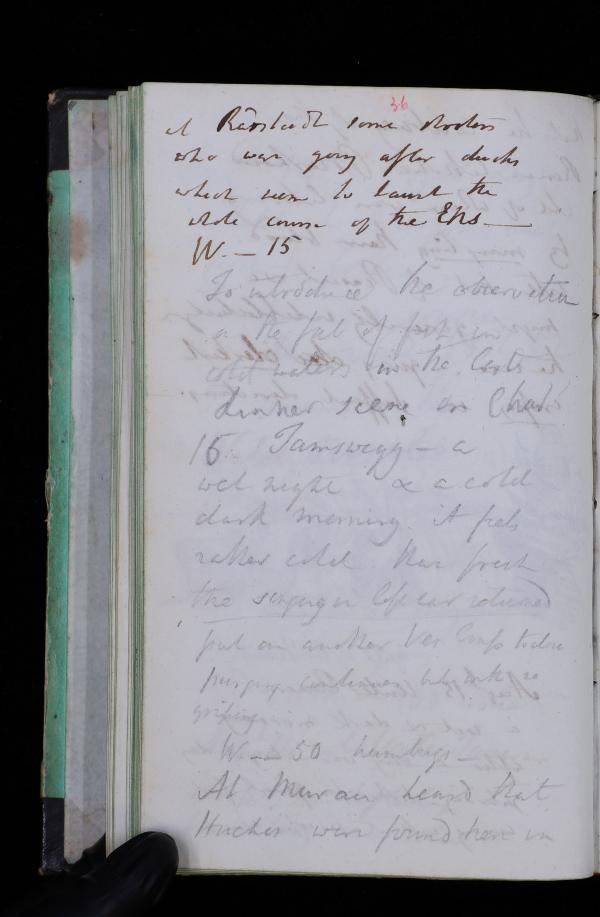 36
at Radstadt some shooters
who was going after ducks
which seem to haunt the
whole course of the Ens —
W. — 15
To introduce the observation
on the fat of fish in
cold waters in the
dinner scene in
15. Tamswegg — a
wet night & a cold
dark morning. it feels
rather cold than fresh
the singing in left ear returned
put on another Ves
purging continues but with no
griping
W. — 50 humbugs —
At Murau heard that
Huchos were found here in